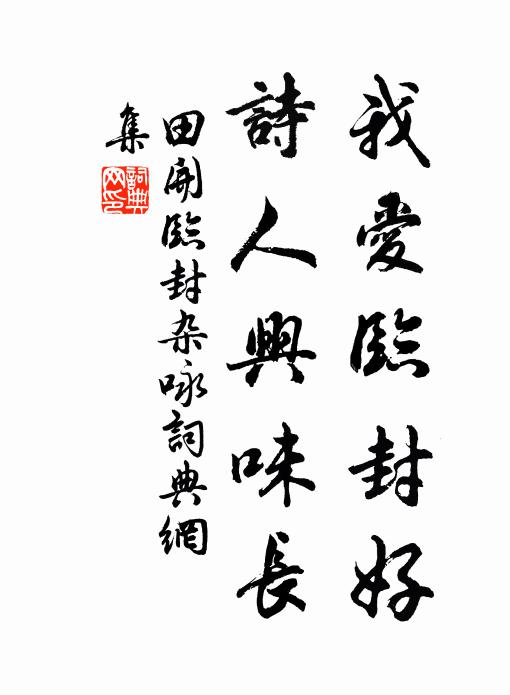 我愛臨封好
詩人興味長
田開臨封杂咏詞典網
集
詞典
网印